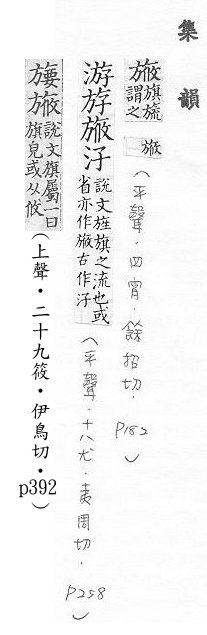 集韻
㫍旗旒謂之㫍(平聲.四宵.餘招切.p182)
游斿㫍汓說文旌旗之流也或省亦作㫍古作汓(平聲.十八尤.夷周切.p258)
㫏㫍說文旗屬一曰旗皃或从攸(上聲.二十九筱.伊鳥切.p392)